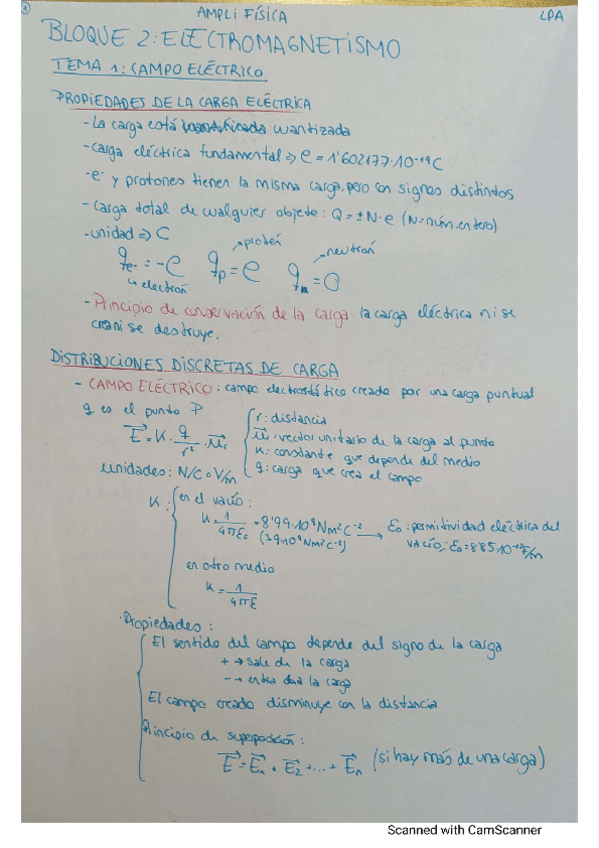 1
AMPLI FÍSICA
LPA
BLOQUE 2: ELECTROMAGNETISMO
TEMA 1: CAMPO ELÉCTRICO
PROPIEDADES DE LA CARGA ELÉCTRICA
- La carga está cuantizada
- Carga eléctrica fundamental => e = 1'602177·10⁻¹⁹C
- e⁻ y protones tienen la misma carga, pero con signos distintos
- Carga total de cualquier objeto: Q = ±N·e (N = núm. entero)
- unidad => C
protón
neutrón
qe⁻ = -e qp = e qn = 0
electrón
- Principio de conservación de la carga: la carga eléctrica ni se
crea ni se destruye.
DISTRIBUCIONES DISCRETAS DE CARGA
- CAMPO ELÉCTRICO: campo electrostático creado por una carga puntual
q es el punto P
E⃗ = K · q/r² · u⃗r
r: distancia
u⃗r: vector unitario de la carga al punto
K: constante que depende del medio
q: carga que crea el campo
unidades: N/C o V/m
K:
en el vacío:
K = 1/4πε₀ = 8'99·10⁹ Nm²C⁻² → ε₀: permitividad eléctrica del
(≈9·10⁹ Nm²C⁻²) vacío; ε₀ = 8'85·10⁻¹² F/m
en otro medio
K = 1/4πε
· Propiedades:
El sentido del campo depende del signo de la carga
+ → sale de la carga
- → entra la carga
El campo creado disminuye con la distancia
Principio de superposición:
E⃗ = E⃗₁ + E⃗₂ + ... + E⃗n (si hay más de una carga)
Scanned with CamScanner